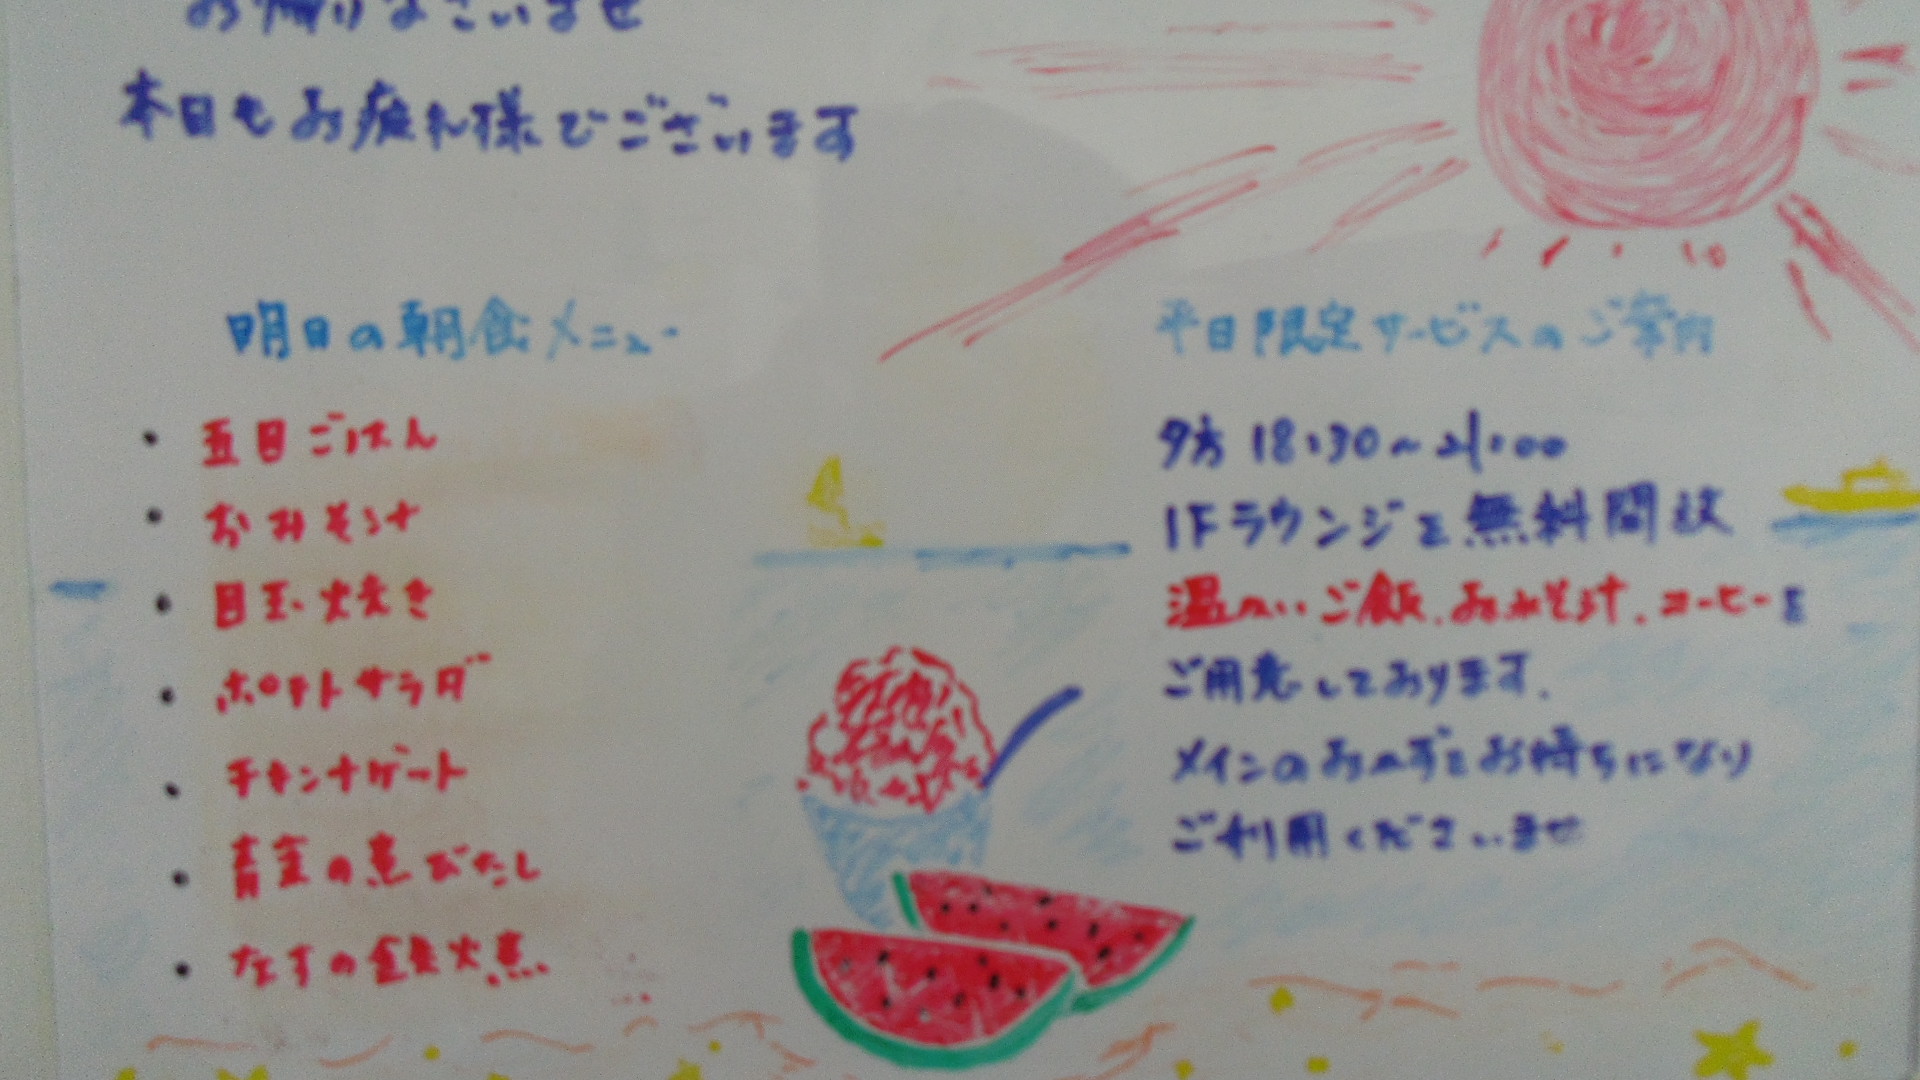 お帰りなさいませ
本日もお疲れ様でございます
明日の朝食メニュー
・五目ごはん
・おみそ汁
・目玉焼き
・ポテトサラダ
・チキンナゲット
・青菜の煮びたし
・なすの煮
平日限定サービスのご案内
夕方 18:30~21:00
1Fラウンジを無料開放
温かいご飯、おみそ汁、コーヒーを
ご用意しております。
メインのおかずをお持ちになり
ご利用くださいませ